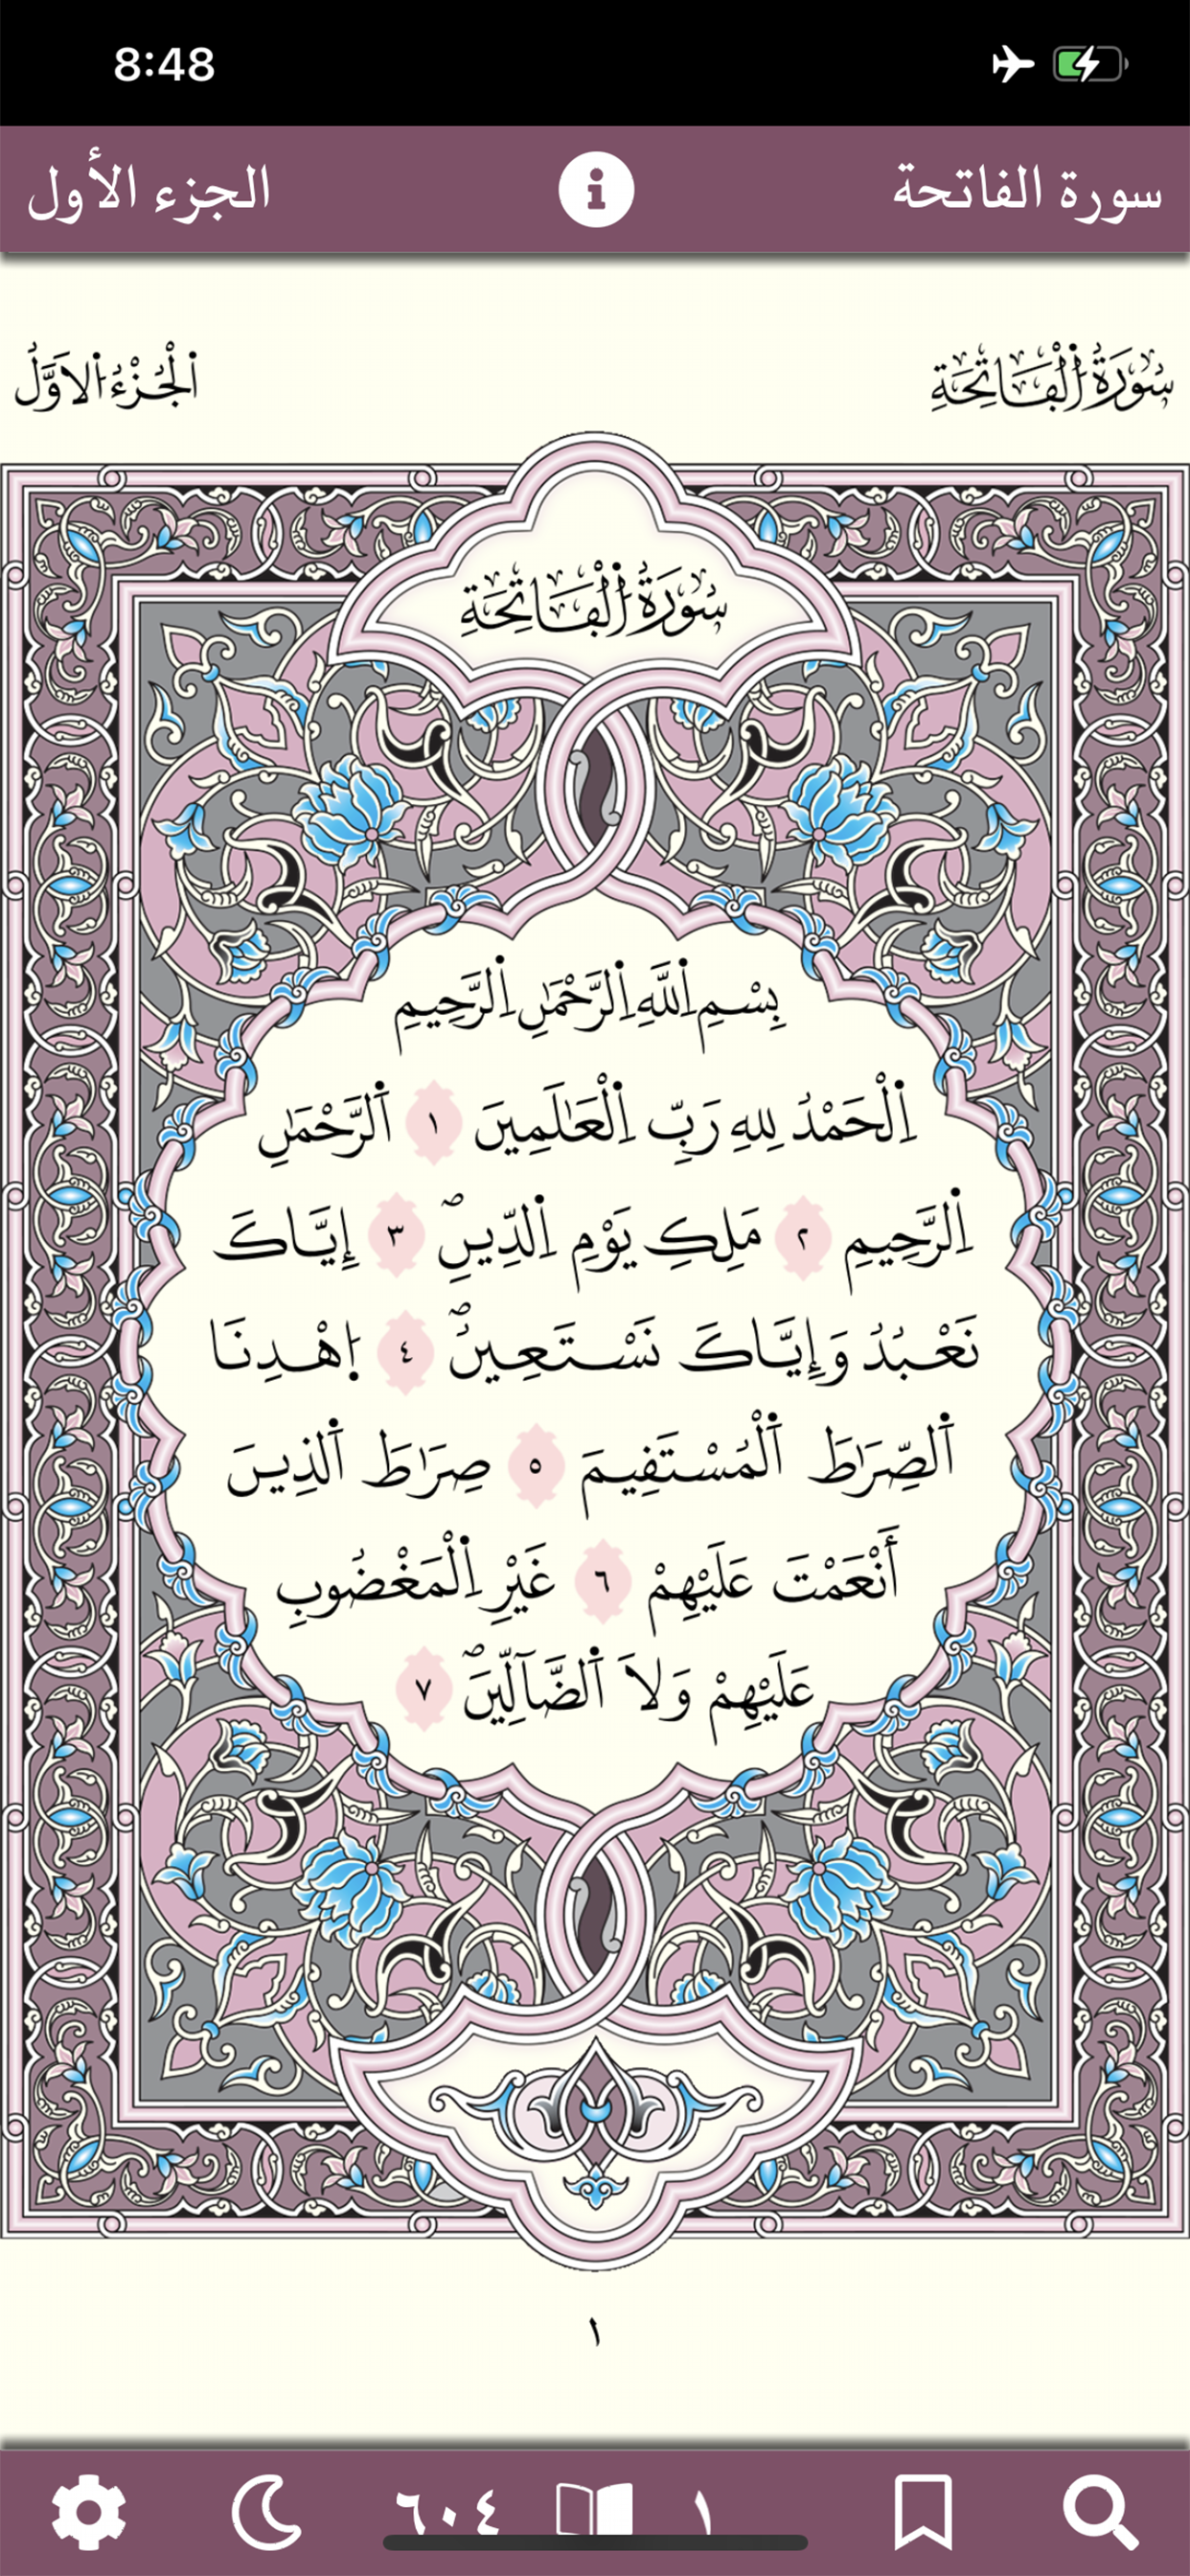 8:48
سورة الفاتحة الجزء الأول
سُورَةُ اُ۬لْفَاتِحَةِ اَ۬لْجُزْءُ اُ۬لَاوَّلُ
سُورَةُ اُ۬لْفَاتِحَةِ
بِسْمِ اِ۬للَّهِ اِ۬لرَّحْمَٰنِ اِ۬لرَّحِيمِ
اِ۬لْحَمْدُ لِلهِ رَبِّ اِ۬لْعَٰلَمِينَ ١ اَ۬لرَّحْمَٰنِ
اِ۬لرَّحِيمِ ٢ مَلِكِ يَوْمِ اِ۬لدِّينِۖ ٣ إِيَّاكَ
نَعْبُدُ وَإِيَّاكَ نَسْتَعِينُۖ ٤ اِ۪هْدِنَا
اَ۬لصِّرَٰطَ اَ۬لْمُسْتَقِيمَ ٥ صِرَٰطَ اَ۬لذِينَ
أَنْعَمْتَ عَلَيْهِمْ ٦ غَيْرِ اِ۬لْمَغْضُوبِ
عَلَيْهِمْ وَلَا اَ۬لضَّآلِّينَۖ ٧
١
١ ٦٠٤